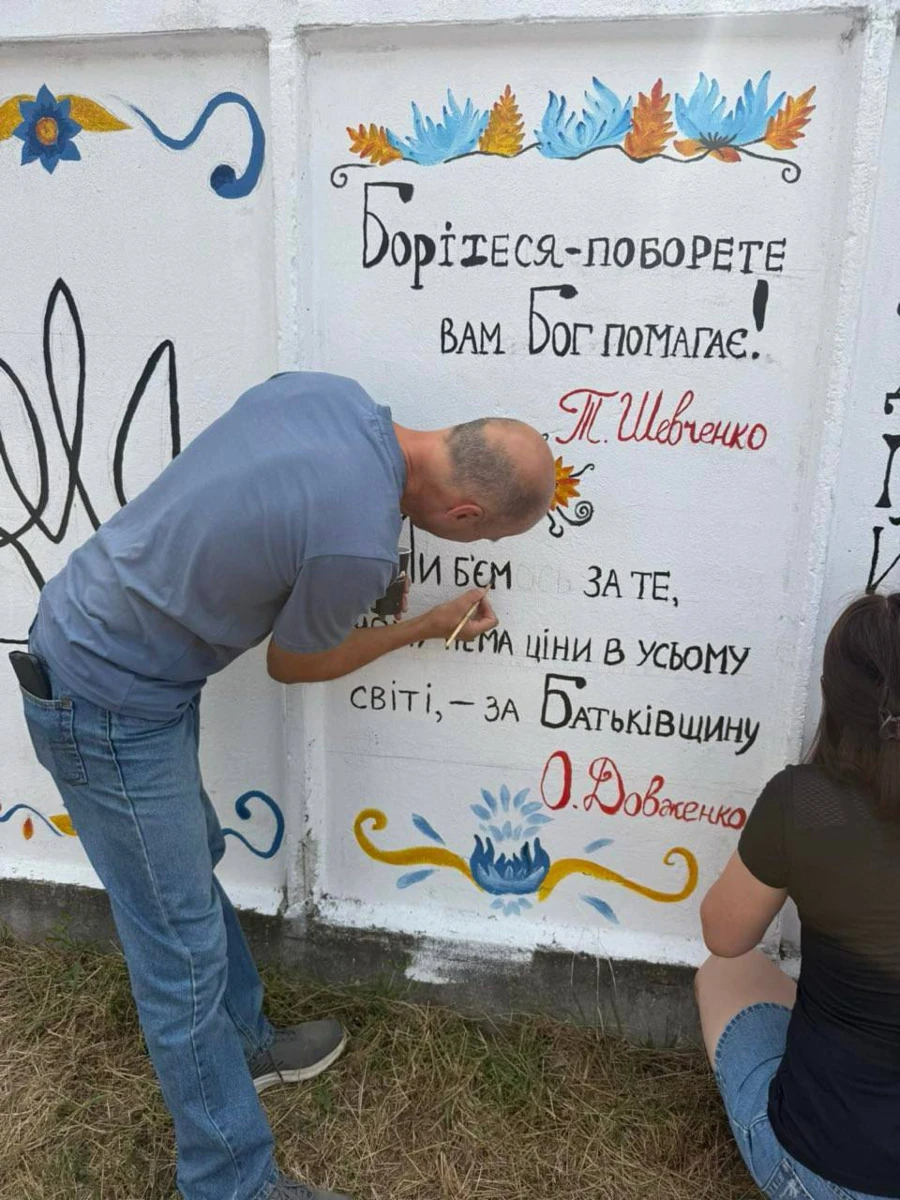 Борітеся-поборете
вам Бог помагає!
Т. Шевченко
Ми б'ємось за те,
нема ціни в усьому
світі, — за Батьківщину
О. Довженко